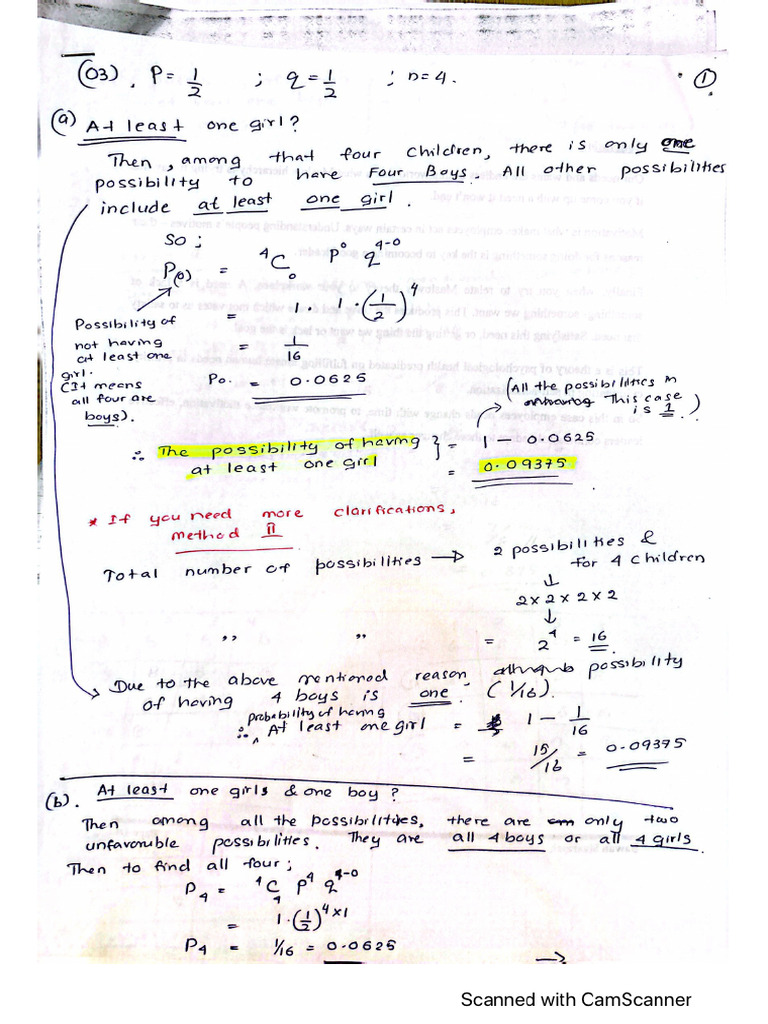 (03). P = 1/2 ; q = 1/2 ; n = 4. ①
(a) At least one girl?
Then, among that four children, there is only one
possibility to have Four Boys. All other possibilities
include at least one girl.
So ;
P(0) = ⁴C₀ p⁰ q⁴⁻⁰
= 1 · 1 · (1/2)⁴
Possibility of
not having
at least one
girl.
(It means
all four are
boys).
= 1/16
P₀. = 0.0625
(All the possibilities in
this case
is 1.)
∴ The possibility of having
at least one girl } = 1 - 0.0625
= 0.09375
* If you need more clarifications,
Method II
Total number of possibilities → 2 possibilities &
for 4 children
↓
2 x 2 x 2 x 2
↓
,, ,, = 2⁴ = 16
Due to the above mentioned reason possibility
of having 4 boys is one. (1/16).
probability of having
∴ At least one girl = 1 - 1/16
= 15/16 = 0.09375
(b). At least one girls & one boy?
Then among all the possibilities, there are only two
unfavourable possibilities. They are all 4 boys or all 4 girls
Then to find all four;
P₄ = ⁴C₄ p⁴ q⁴⁻⁰
= 1·(1/2)⁴ˣ¹
P₄ = 1/16 = 0.0625
→
Scanned with CamScanner